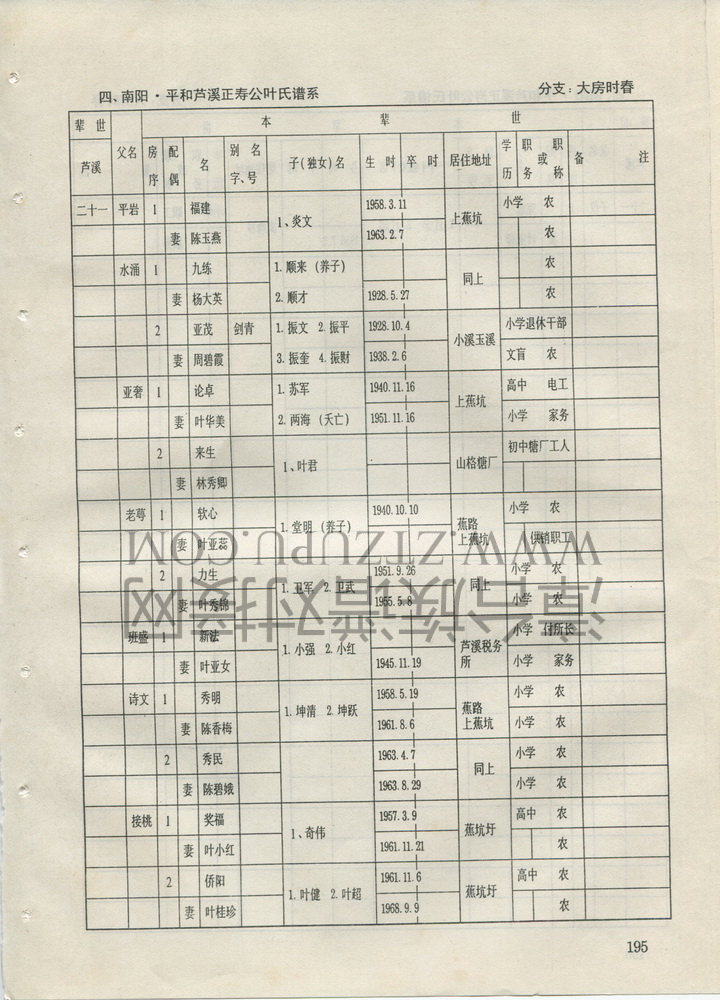 四、南阳·平和芦溪正寿公叶氏谱系 分支：大房时春
辈世 本辈世
芦溪 父名 房序 配偶 名 别名字、号 子(独女)名 生时 卒时 居住地址 学历 职务或职称 备注
二十一 平岩 1 福建 1、炎文 1958.3.11 上蕉坑 小学 农
妻 陈玉燕 1963.2.7 农
水涌 1 九练 1.顺来（养子） 同上 农
妻 杨大英 2.顺才 1928.5.27 农
2 亚茂 剑青 1.振文 2.振平 1928.10.4 小溪玉溪 小学 退休干部
妻 周碧霞 3.振奎 4.振财 1938.2.6 文盲 农
亚奢 1 论卓 1.苏军 1940.11.16 上蕉坑 高中 电工
妻 叶华美 2.两海（夭亡） 1951.11.16 小学 家务
2 来生 1、叶君 山格糖厂 初中 糖厂工人
妻 林秀卿
老萼 1 软心 1.堂明（养子） 1940.10.10 蕉路上蕉坑 小学 农
妻 叶亚蕊 供销职工
2 力生 1.卫军 2.卫武 1951.9.26 同上 小学 农
妻 叶秀锦 1955.5.8 小学 农
班盛 1 新法 1.小强 2.小红 芦溪税务所 小学 付所长
妻 叶亚女 1945.11.19 小学 家务
诗文 1 秀明 1.坤清 2.坤跃 1958.5.19 蕉路上蕉坑 小学 农
妻 陈香梅 1961.8.6 小学 农
2 秀民 1963.4.7 同上 小学 农
妻 陈碧娥 1963.8.29 小学 农
接桃 1 奖福 1、奇伟 1957.3.9 蕉坑圩 高中 农
妻 叶小红 1961.11.21 农
2 侨阳 1.叶健 2.叶超 1961.11.6 蕉坑圩 高中 农
妻 叶桂珍 1968.9.9 农
195
WWW.ZTZUPU.COM
漳台族谱对接网